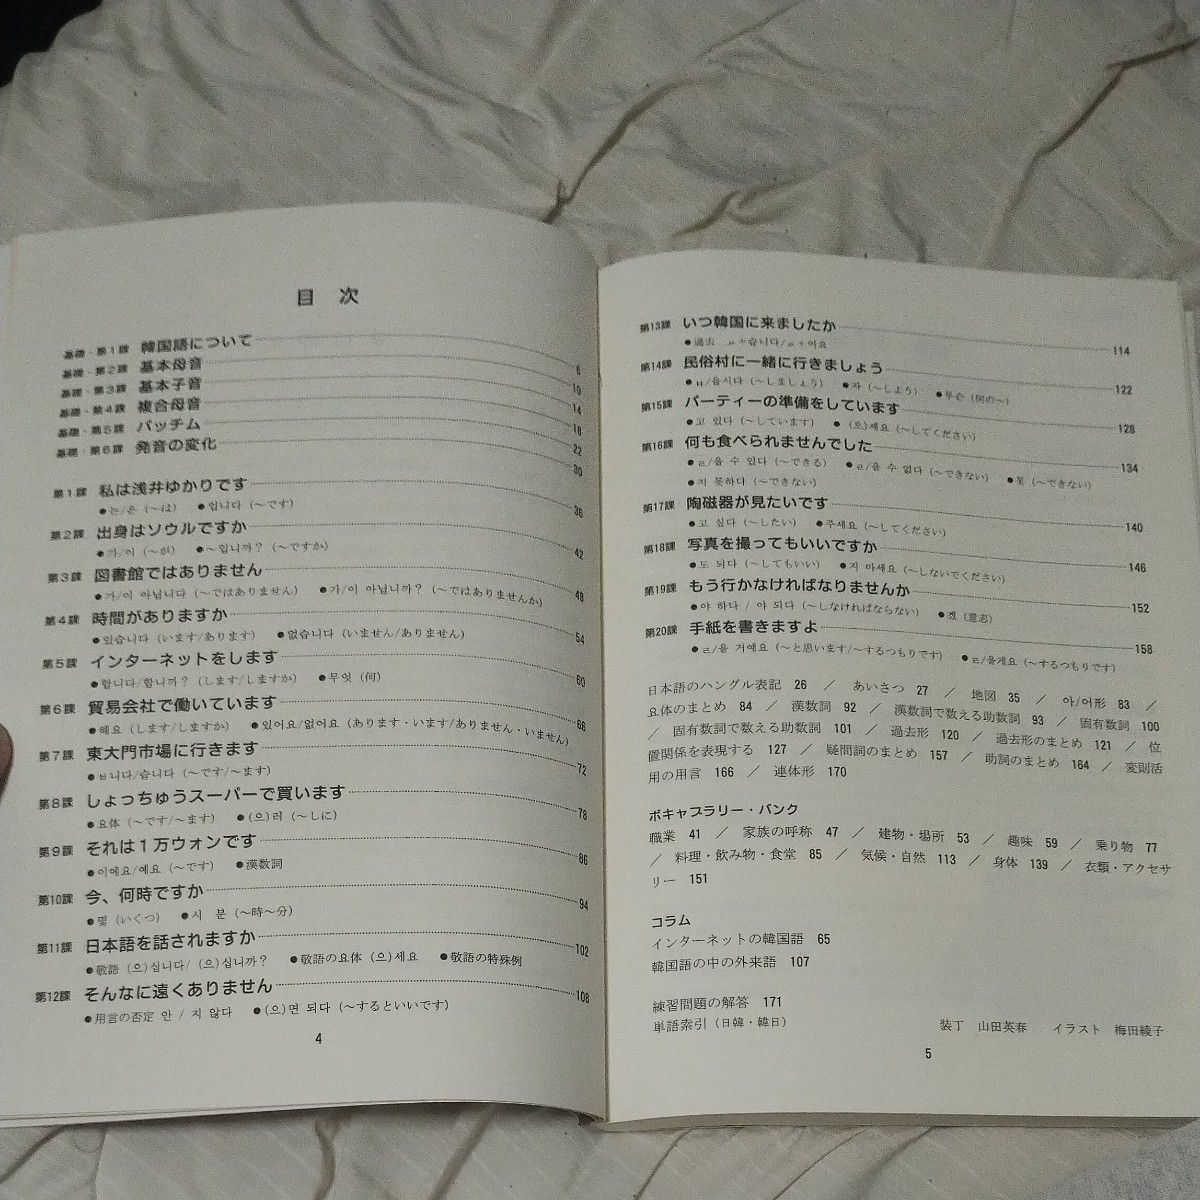 目 次
基礎・第1課 韓国語について 6
基礎・第2課 基本母音 10
基礎・第3課 基本子音 14
基礎・第4課 複合母音 18
基礎・第5課 パッチム 22
基礎・第6課 発音の変化 30
第1課 私は浅井ゆかりです 36
●는/은（〜は） ●입니다（〜です）
第2課 出身はソウルですか 42
●가/이（〜が） ●〜입니까？（〜ですか）
第3課 図書館ではありません 48
●가/이 아닙니다（〜ではありません） ●가/이 아닙니까？（〜ではありませんか）
第4課 時間がありますか 54
●있습니다（います/あります） ●없습니다（いません/ありません）
第5課 インターネットをします 60
●합니다/합니까？（します/しますか） ●무엇（何）
第6課 貿易会社で働いています 66
●해요（します/しますか） ●있어요/없어요（あります・います/ありません・いません）
第7課 東大門市場に行きます 72
●ㅂ니다/습니다（〜です/〜ます）
第8課 しょっちゅうスーパーで買います 78
●요体（〜です/〜ます） ●(으)러（〜しに）
第9課 それは1万ウォンです 86
●이에요/예요（〜です） ●漢数詞
第10課 今、何時ですか 94
●몇（いくつ） ●시 분（〜時〜分）
第11課 日本語を話されますか 102
●敬語（으)십니다/（으)십니까？ ●敬語の요体（으)세요 ●敬語の特殊例
第12課 そんなに遠くありません 108
●用言の否定 안 / 지 않다 ●(으)면 되다（〜するといいです）
4
第13課 いつ韓国に来ましたか 114
●過去 ㅆ+습니다/ㅆ+어요
第14課 民俗村に一緒に行きましょう 122
●ㅂ/읍시다（〜しましょう） ●자（〜しよう） ●무슨（何の〜）
第15課 パーティーの準備をしています 128
●고 있다（〜しています） ●(으)세요（〜してください）
第16課 何も食べられませんでした 134
●ㄹ/을 수 있다（〜できる） ●ㄹ/을 수 없다（〜できない） ●못（〜できない）
●지 못하다（〜できない）
第17課 陶磁器が見たいです 140
●고 싶다（〜したい） ●주세요（〜してください）
第18課 写真を撮ってもいいですか 146
●도 되다（〜してもいい） ●지 마세요（〜しないでください）
第19課 もう行かなければなりませんか 152
●야 하다 / 야 되다（〜しなければならない） ●겠（意志）
第20課 手紙を書きますよ 158
●ㄹ/을 거예요（〜と思います/〜するつもりです） ●ㄹ/을게요（〜するつもりです）
日本語のハングル表記 26 ／ あいさつ 27 ／ 地図 35 ／ 아/어形 83 ／
요体のまとめ 84 ／ 漢数詞 92 ／ 漢数詞で数える助数詞 93 ／ 固有数詞 100
／ 固有数詞で数える助数詞 101 ／ 過去形 120 ／ 過去形のまとめ 121 ／ 位
置関係を表現する 127 ／ 疑問詞のまとめ 157 ／ 助詞のまとめ 164 ／ 変則活
用の用言 166 ／ 連体形 170
ボキャブラリー・バンク
職業 41 ／ 家族の呼称 47 ／ 建物・場所 53 ／ 趣味 59 ／ 乗り物 77
／ 料理・飲み物・食堂 85 ／ 気候・自然 113 ／ 身体 139 ／ 衣類・アクセサ
リー 151
コラム
インターネットの韓国語 65
韓国語の中の外来語 107
練習問題の解答 171
単語索引（日韓・韓日）
装丁 山田英春 イラスト 梅田綾子
5